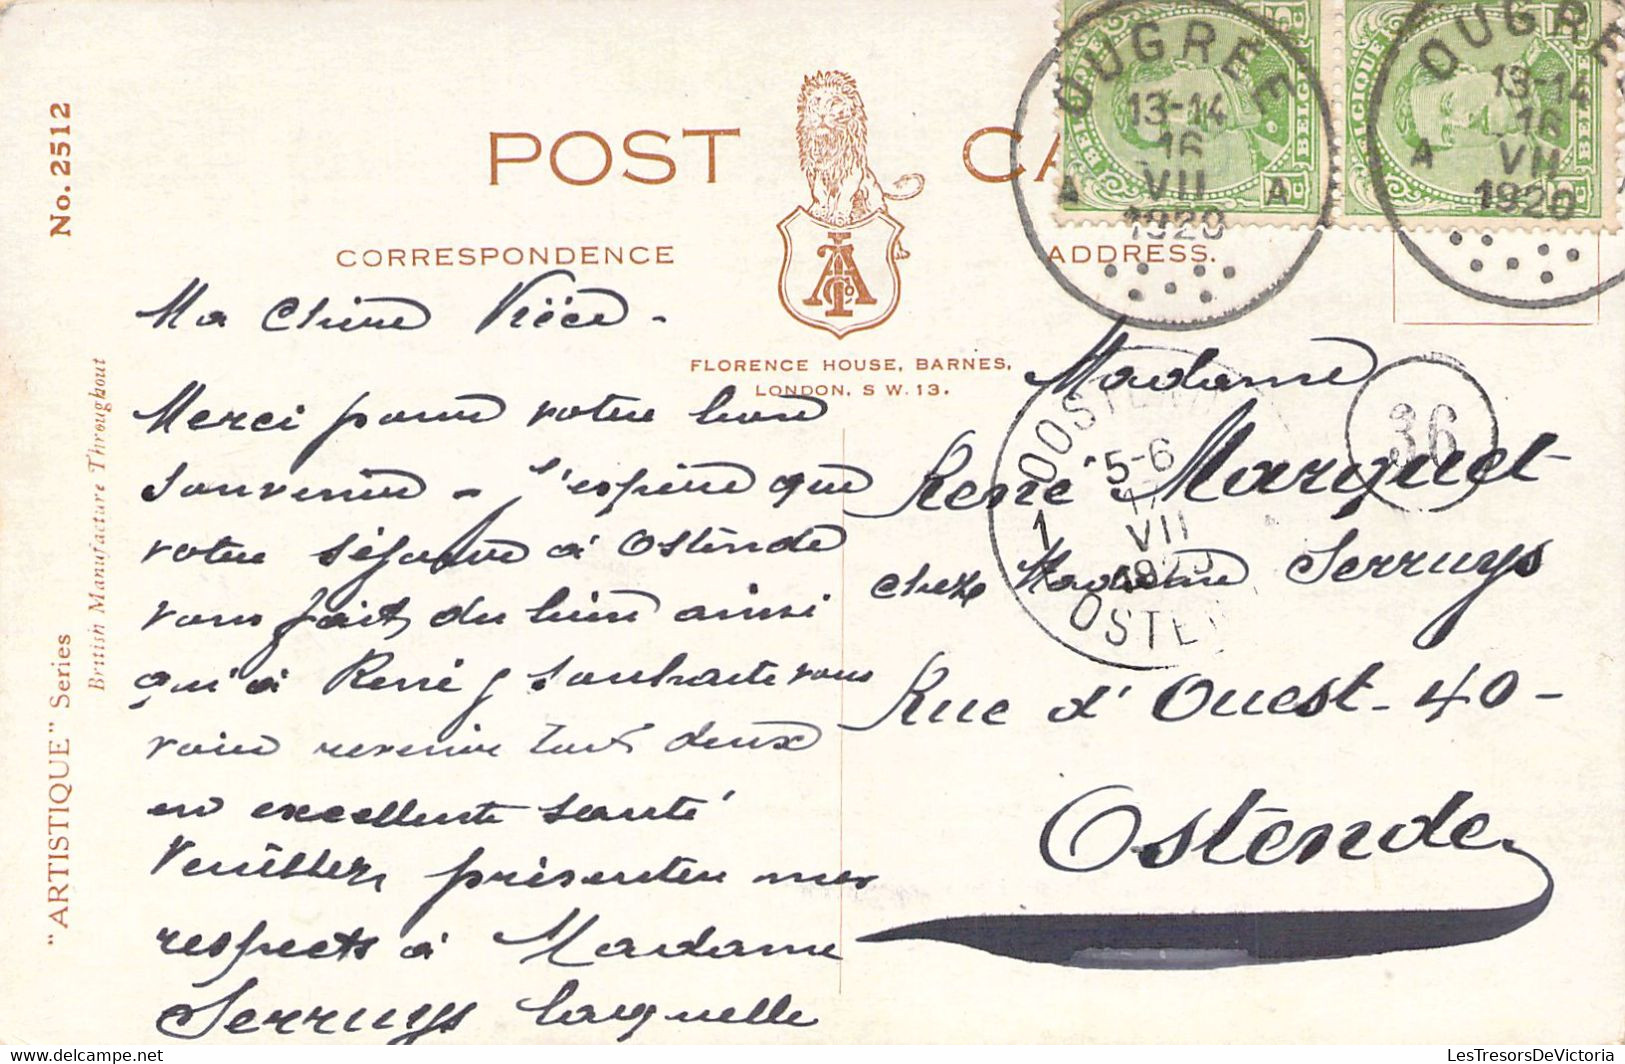 No. 2512
British Manufacture Throughout
"ARTISTIQUE" Series
POST CA
CORRESPONDENCE
ADDRESS.
FLORENCE HOUSE, BARNES,
LONDON, S W. 13.
BELGIQUE BELGIE
BELGIQUE BELGIE
OUGRÉE
13-14
16
A VII A
1920
OUGRÉE
13-14
16
A VII
1920
OOSTEN
5-6
1 VII
OSTE
36
Ma Chère Nièce -
Merci pour votre bon
souvenir - j'espère que
votre séjour à Ostende
vous fait du bien ainsi
qu'à René je souhaite vous
voir revenir tous deux
en excellente santé
Veuillez présenter mes
respects à Madame
Serruys laquelle
Madame
René Marquet
chez Madame Serruys
Rue d'Ouest - 40 -
Ostende
LesTresorsDeVictoria